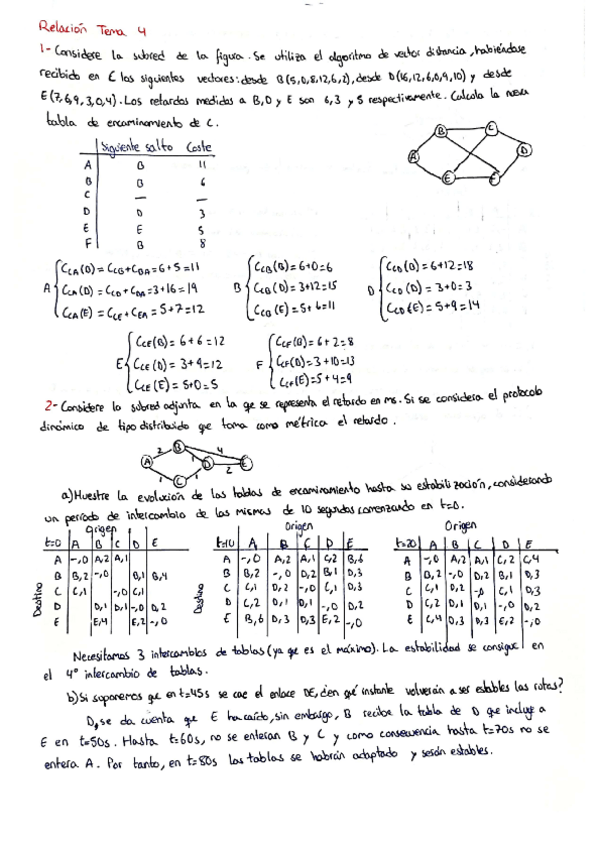 Relación Tema 4
1- Considere la subred de la figura. Se utiliza el algoritmo de vector distancia, habiéndose
recibido en C los siguientes vectores: desde B(5,0,8,12,6,2), desde D(16,12,6,0,9,10) y desde
E(7,6,9,3,0,4). Los retardos medidos a B, D y E son 6, 3 y 5 respectivamente. Calcula la nueva
tabla de encaminamiento de C.
Siguiente salto Coste
A B 11
B B 6
C — —
D D 3
E E 5
F B 8
B C
A D
E F
A CCA(B) = CCB + CBA = 6 + 5 = 11
CCA(D) = CCD + CDA = 3 + 16 = 19
CCA(E) = CCE + CEA = 5 + 7 = 12
B CCB(B) = 6+0 = 6
CCB(D) = 3+12 = 15
CCB(E) = 5+6 = 11
D CCD(B) = 6+12 = 18
CCD(D) = 3+0 = 3
CCD(E) = 5+9 = 14
E CCE(B) = 6+6 = 12
CCE(D) = 3+9 = 12
CCE(E) = 5+0 = 5
F CCF(B) = 6+2 = 8
CCF(D) = 3+10 = 13
CCF(E) = 5+4 = 9
2- Considere la subred adjunta en la qe se representa el retardo en ms. Si se considera el protocolo
dinámico de tipo distribuido que toma como métrica el retardo.
A B C D E
2 4 1 1 1 2
a) Muestre la evolución de las tablas de encaminamiento hasta su estabilización, considerando
un período de intercambio de las mismas de 10 segundos comenzando en t=0.
Origen
t=0 A B C D E
A -,0 A,2 A,1
B B,2 -,0 B,1 B,4
C C,1 -,0 C,1
D D,1 D,1 -,0 D,2
E E,4 E,2 -,0
Destino
Origen
t=10 A B C D E
A -,0 A,2 A,1 C,2 B,6
B B,2 -,0 D,2 B,1 D,3
C C,1 D,2 -,0 C,1 D,3
D C,2 D,1 D,1 -,0 D,2
E B,6 D,3 D,3 E,2 -,0
Destino
Origen
t=20 A B C D E
A -,0 A,2 A,1 C,2 C,4
B B,2 -,0 D,2 B,1 D,3
C C,1 D,2 -,0 C,1 D,3
D C,2 D,1 D,1 -,0 D,2
E C,4 D,3 D,3 E,2 -,0
Necesitamos 3 intercambios de tablas (ya que es el máximo). La estabilidad se consigue en
el 4º intercambio de tablas.
b) Si suponemos qe en t=45s se cae el enlace DE, ¿en qué instante volverán a ser estables las rutas?
D, se da cuenta que E ha caído, sin embargo, B recibe la tabla de D que incluye a
E en t=50s. Hasta t=60s, no se enteran B y C y como consecuencia hasta t=70s no se
entera A. Por tanto, en t=80s las tablas se habrán adaptado y serán estables.